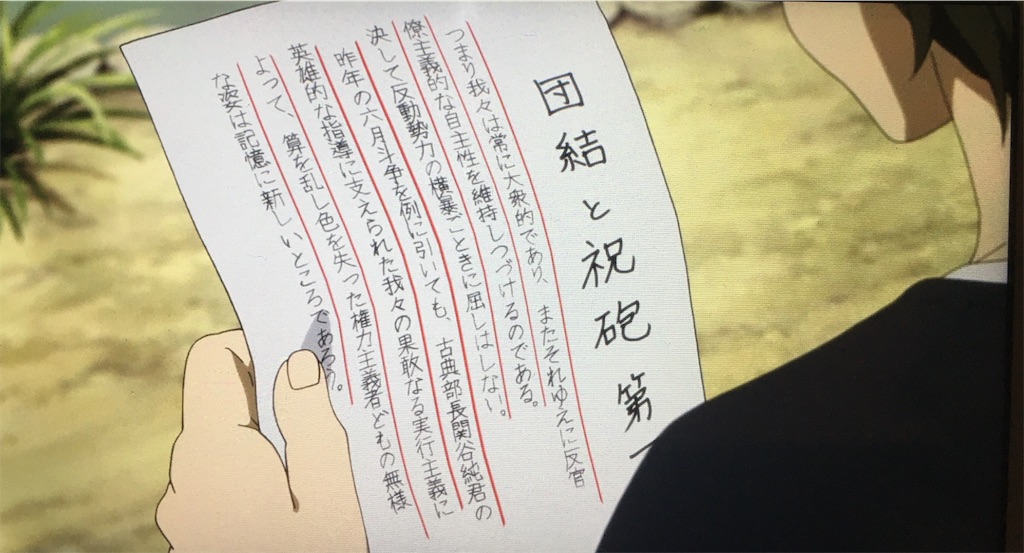 団結と祝砲 第
つまり我々は常に大衆的であり、またそれゆえに反官
僚主義的な自主性を維持しつづけるのである。
決して反動勢力の横暴ごときに屈しはしない。
昨年の六月斗争を例に引いても、古典部長関谷純君の
英雄的な指導に支えられた我々の果敢なる実行主義に
よって、算を乱し色を失った権力主義者どもの無様
な姿は記憶に新しいところであろう。